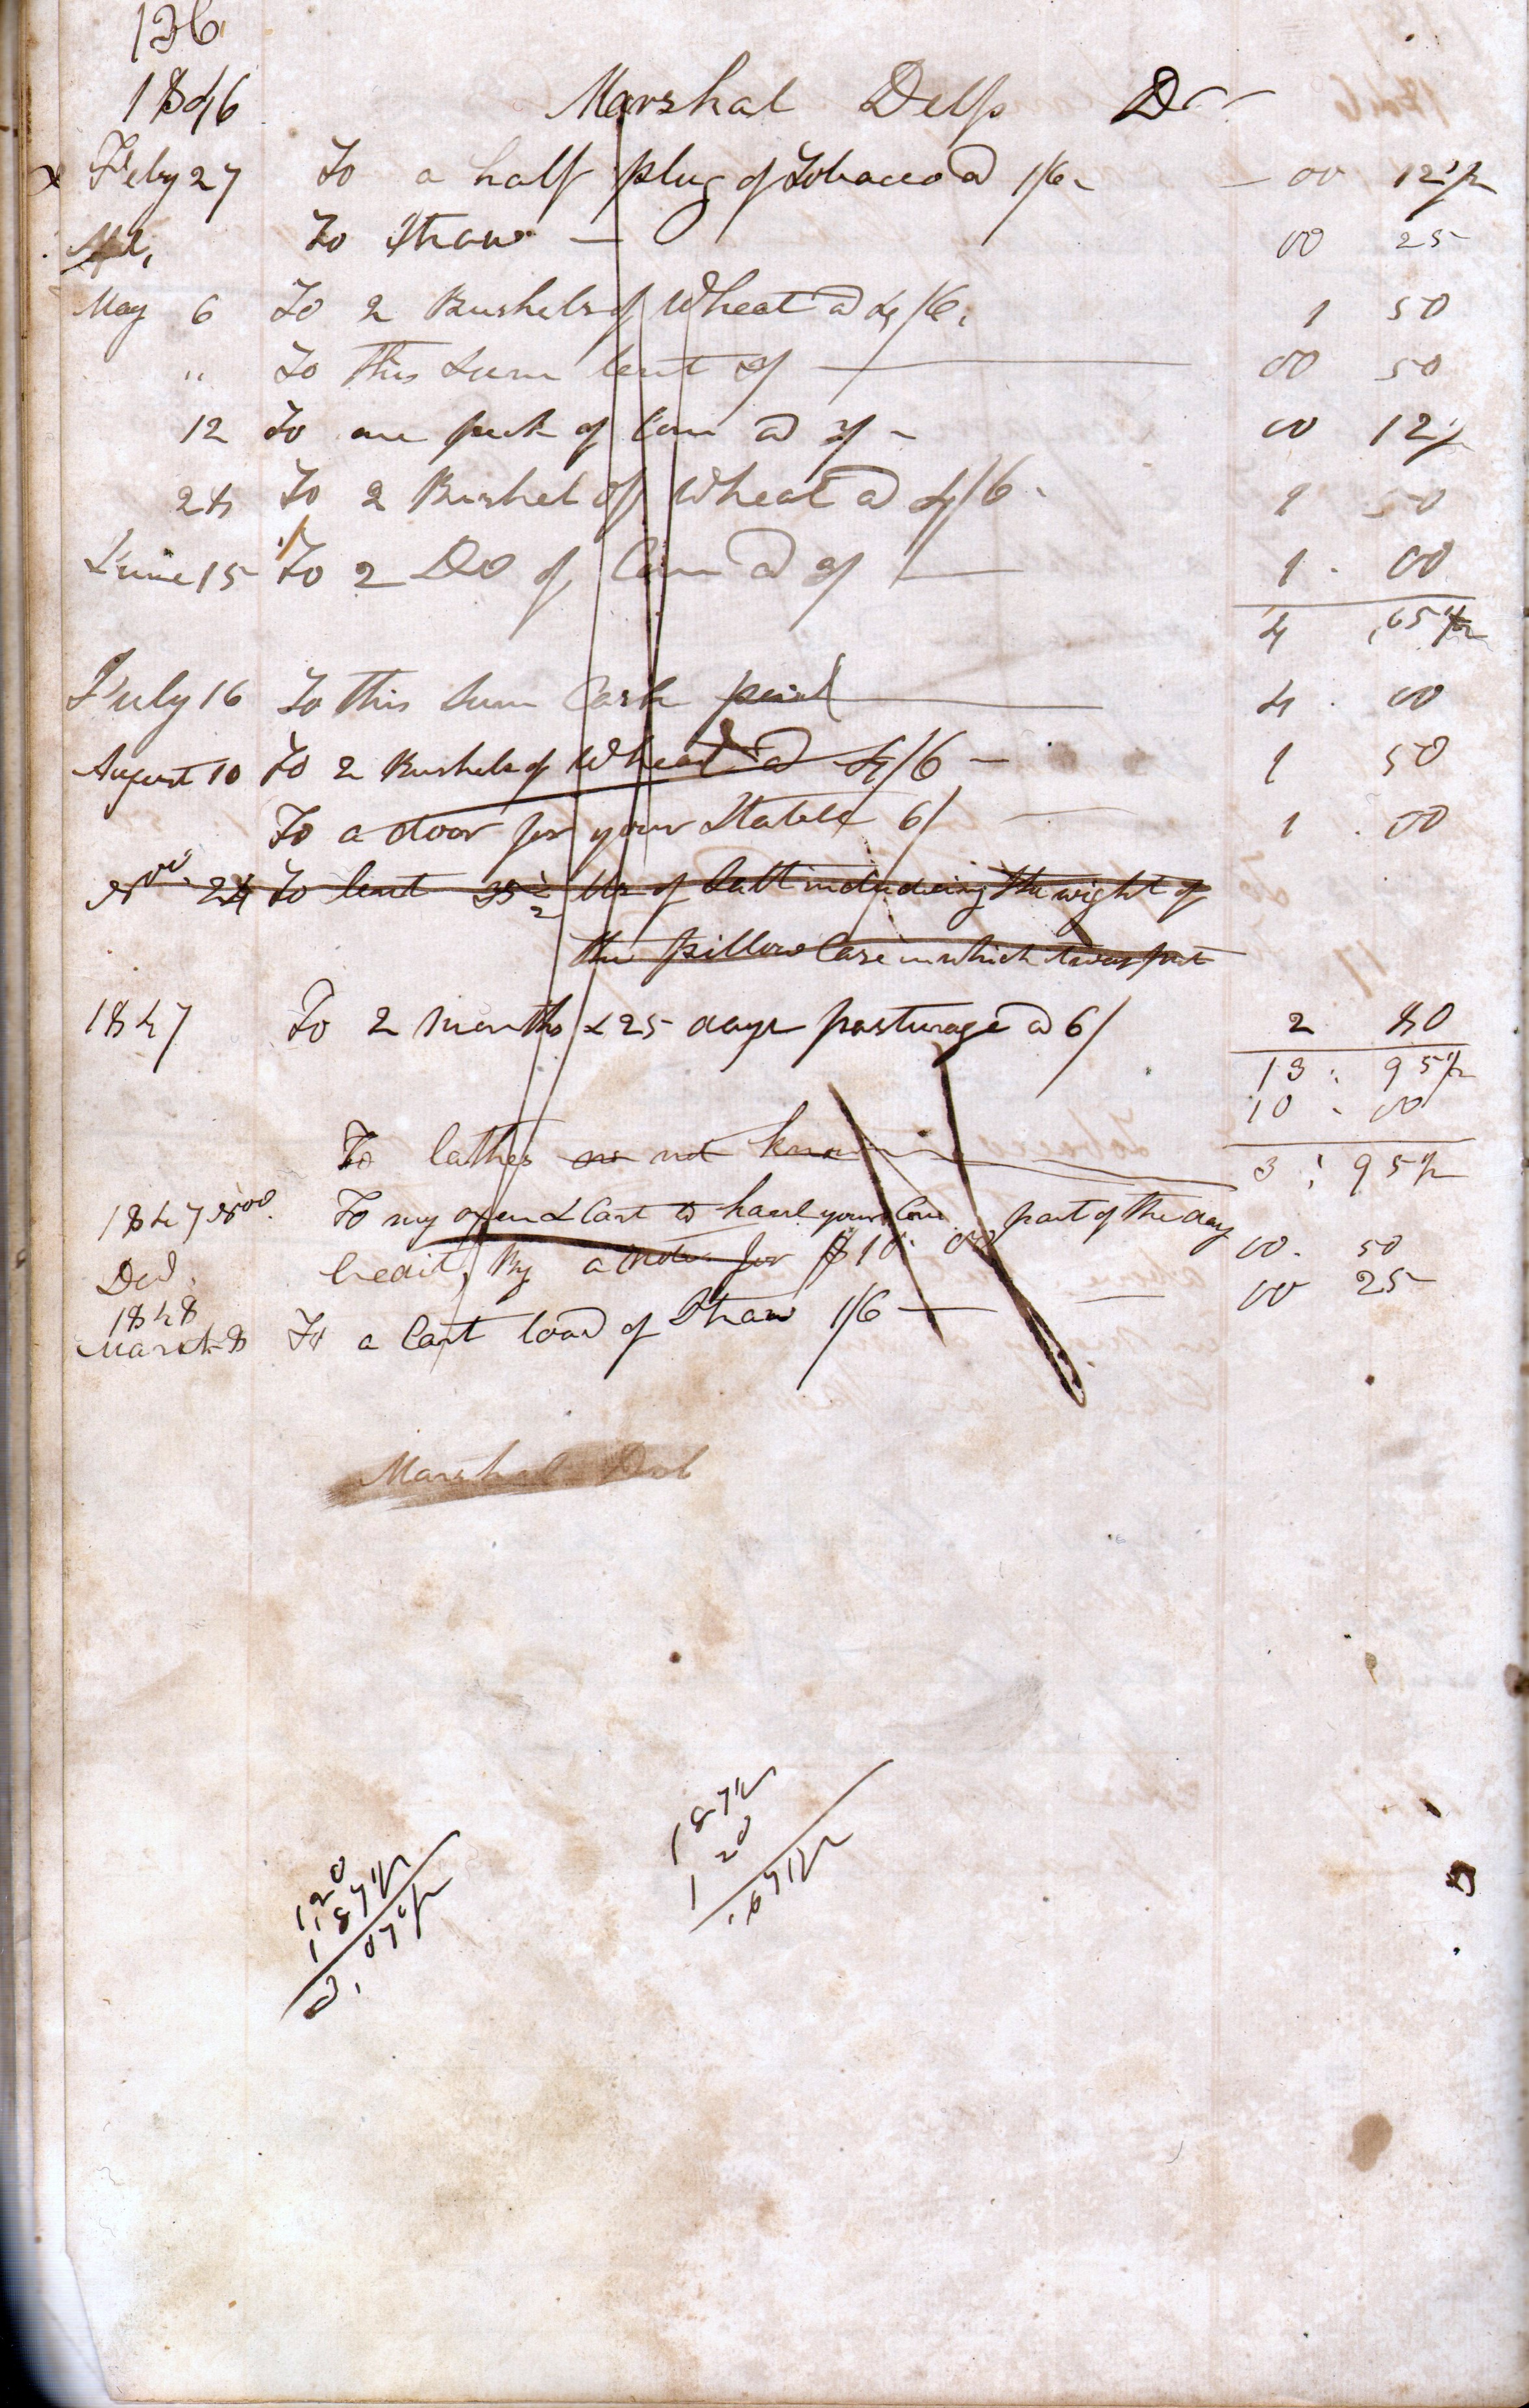 136
1846 Marshal Delp Dr
x Feby 27 To a half plug of Tobacco @ 1/6 - 00 12 1/2
Apl, To Straw — 00 25
May 6 To 2 Bushels of Wheat @ 4/6, 1 50
" To this Sum lent of — 00 50
12 To one peck of Corn @ - 00 12 1/2
24 To 2 Bushel of Wheat @ 4/6 - 1 50
June 15 To 2 Do of Corn @ — 1 . 00
4 . 65 1/2
July 16 To this Sum Cash paid — 4 . 00
August 10 To 2 Bushels of Wheat @ 4/6 — 1 50
To a door for your Stable 6/ — 1 . 00
Nov. 24 To lent 35 1/2 lbs of Salt including the wight of
the pillow Case in which twas put
1847 To 2 months & 25 days pasturage @ 6/ 2 80
13 : 95 1/2
10 . 00
To lathes no not know — 3 : 95 1/2
1847 Nov. To my oxen & Cart to haul your Corn part of the day 00 . 50
Dec. Credit, By a Note for $10. 00
1848
March 8 To a Cart load of Straw 1/6 — 00 25
Marshal Del
1 87 1/2
1 20
. 67 1/2
1 20
1, 87 1/2
3, 07 1/2